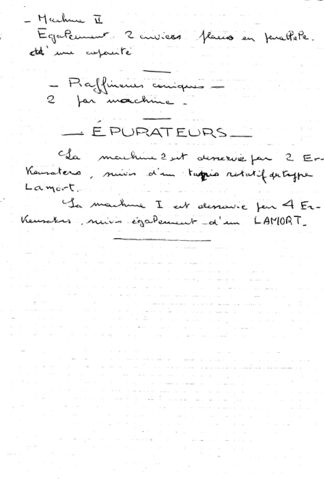 - Machine II
Egalement 2 cuviers plans en parallèle.
d'une capacité
- Raffineurs coniques -
2 par machine -
- ÉPURATEURS -
La machine 2 est desservie par 2 Er-
Kensators, suivis d'un tapis rotatif du type
Lamort.
La machine I est desservie par 4 Er-
Kensators, suivis également d'un LAMORT.